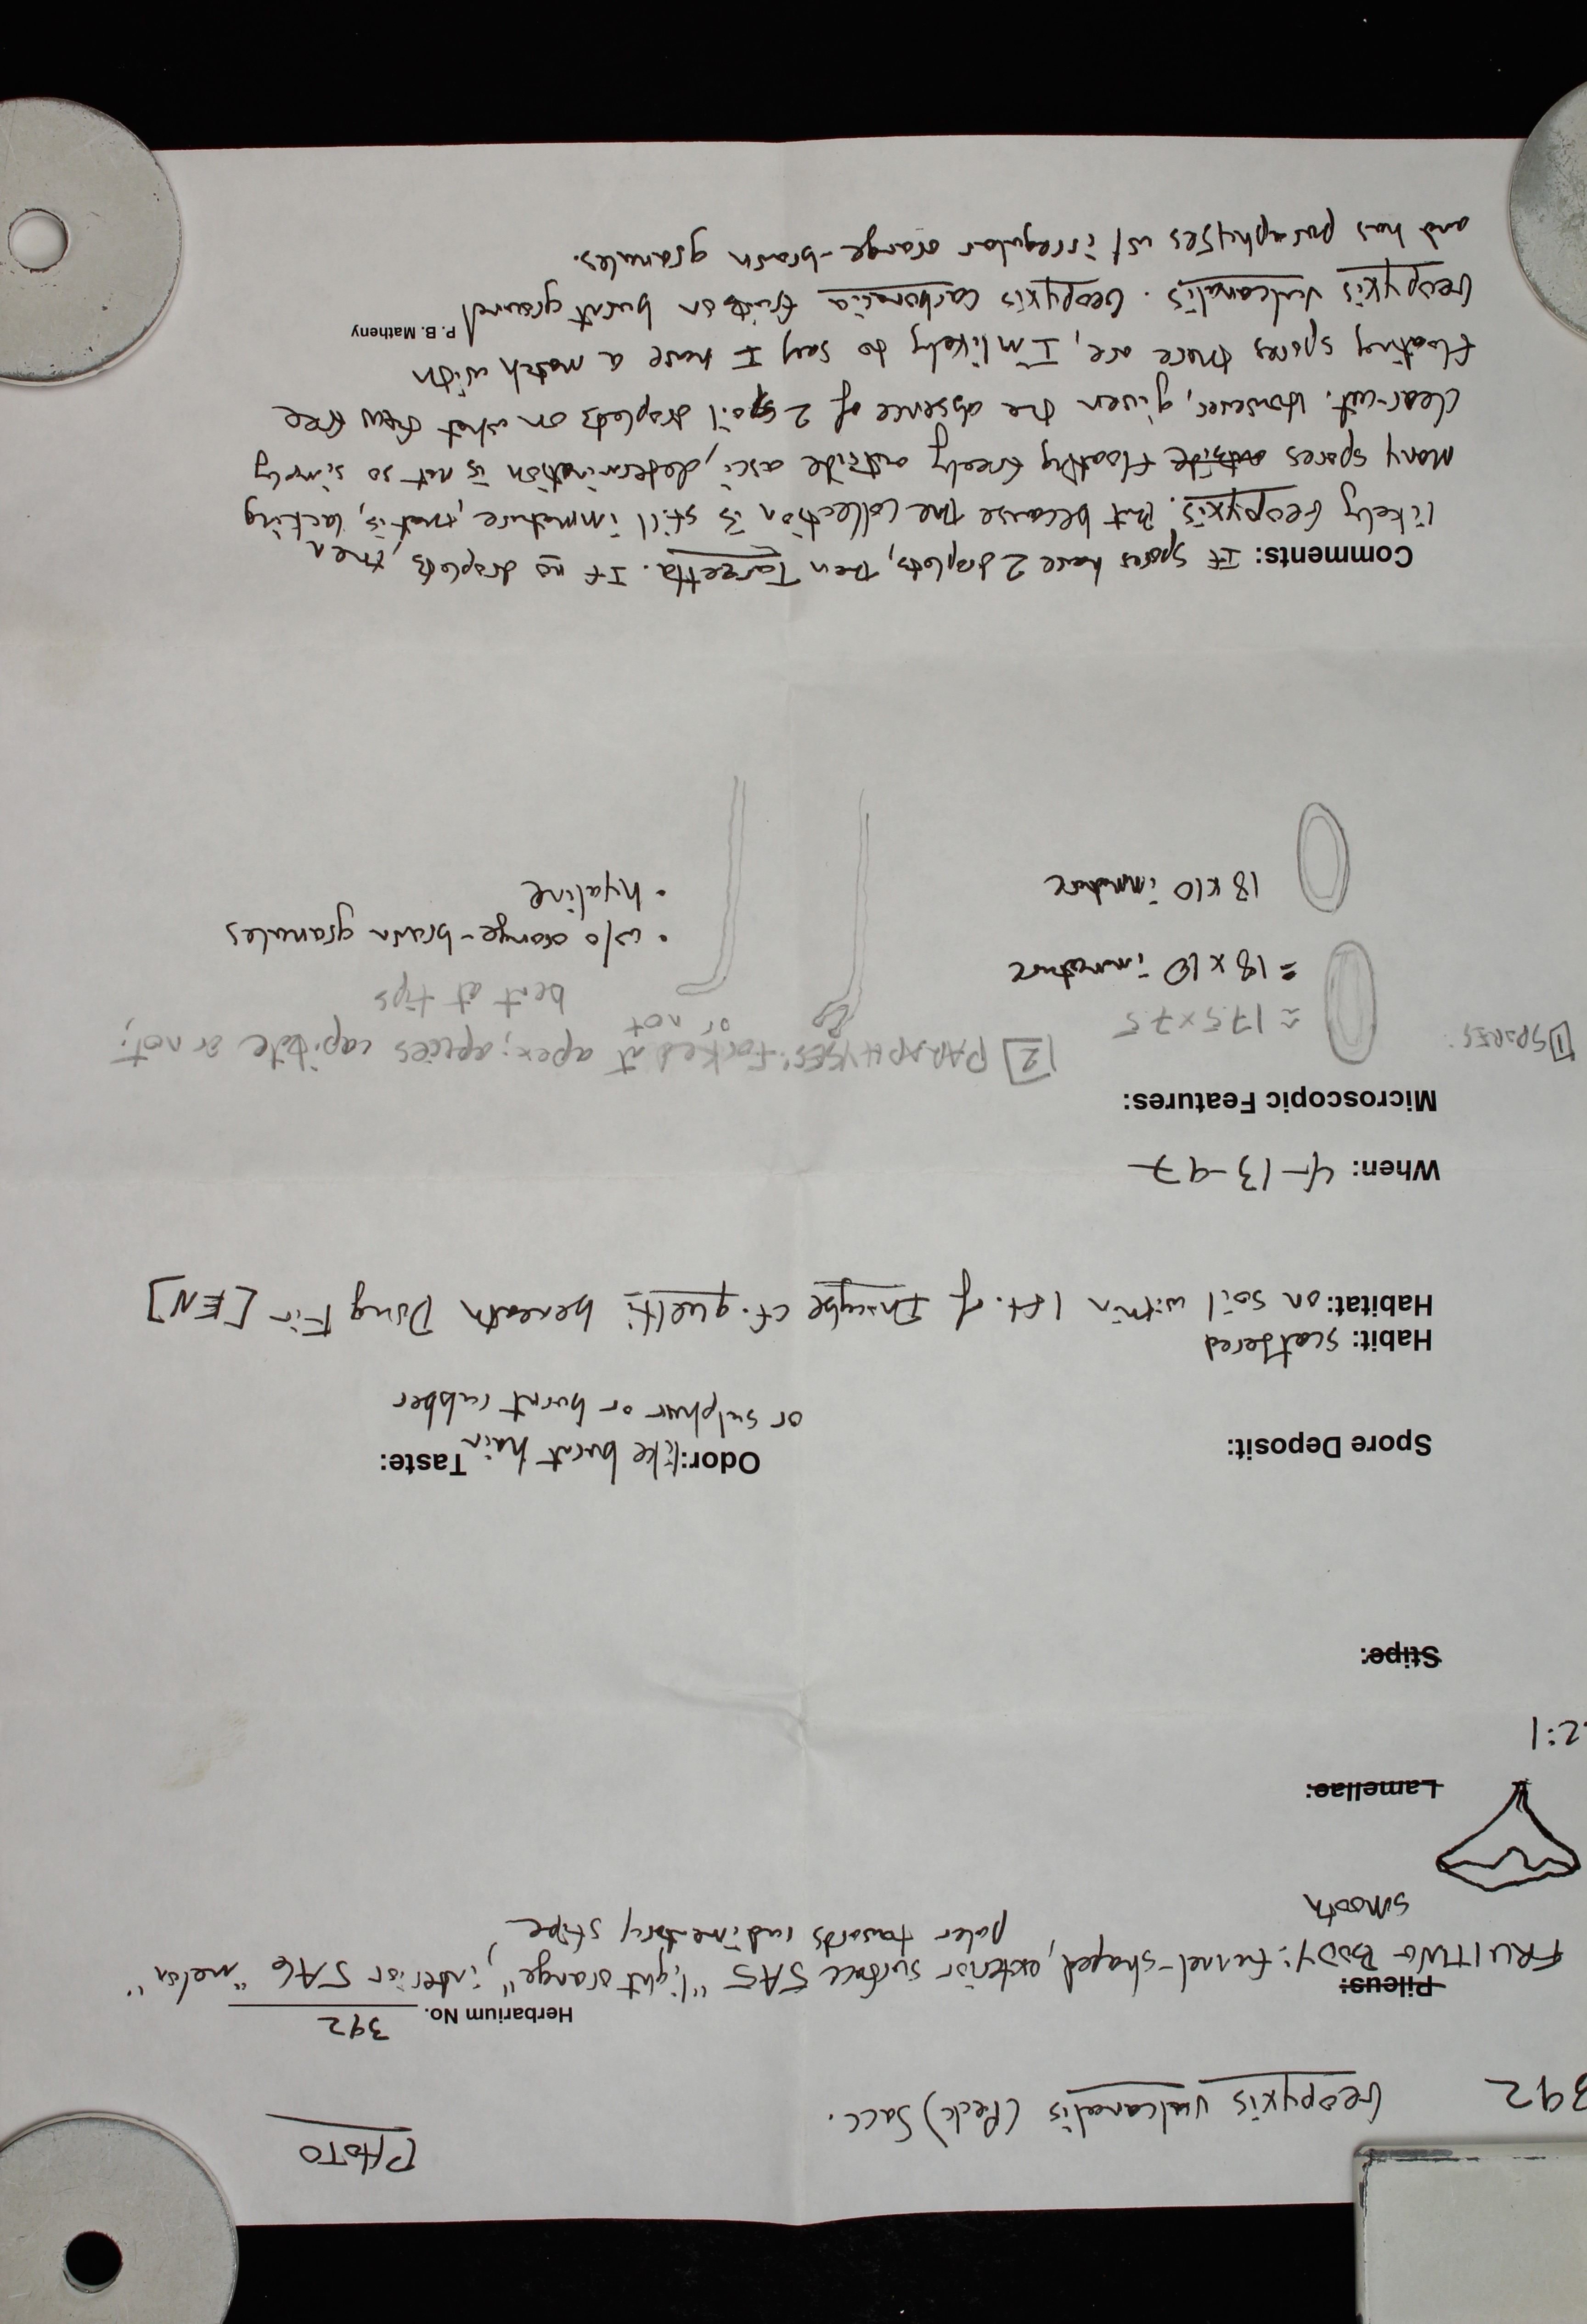 PHOTO
392 Geopyxis vulcanalis (Peck) Sacc.
Herbarium No. 392
Pileus:
FRUITING BODY: funnel-shaped, exterior surface 5A5 "light orange", interior 5A6 "melon"
smooth paler towards rudimentary stipe
Lamellae:
2:1
Stipe:
Spore Deposit: Odor: like burnt hair Taste:
or sulphur or burnt rubber
Habit: scattered
Habitat: on soil within 1 ft. of Inocybe cf. quelti beneath Doug Fir [EN]
When: 4-13-97
Microscopic Features:
1 SPORES: ≈ 17.5 x 7.5
= 18 x 10 immature
18 x 10 immature
2 PARAPHYSES: forked at apex; apices capitate or not;
or not bent at tips
• w/o orange-brown granules
• hyaline
Comments: If spores have 2 droplets, then Tarzetta. If no droplets, then
likely Geopyxis. But because the collection is still immature, that is, lacking
many spores outside floating freely outside asci, determination is not so simply
clear-cut. However, given the absence of 2 oil droplets on what few free
floating spores there are, I'm likely to say I have a match with
Geopyxis vulcanalis. Geopyxis carbonaria fruits on burnt ground
P. B. Matheny
and has paraphyses w/ irregular orange-brown granules.